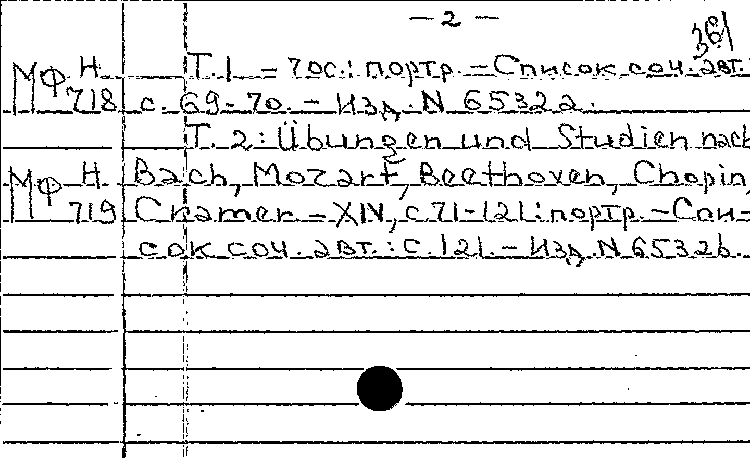 — 2 —
361
МФ Н 718 Т. 1 – 70с.: портр. – Список соч. авт.:
с. 69-70. – Изд. N 6532a.
Т. 2: Übungen und Studien nach
МФ Н 719 Bach, Mozart, Beethoven, Chopin,
Cramer – XIV, с 71-121: портр. – Спи-
сок соч. авт.: с. 121. – Изд. N 6532b.